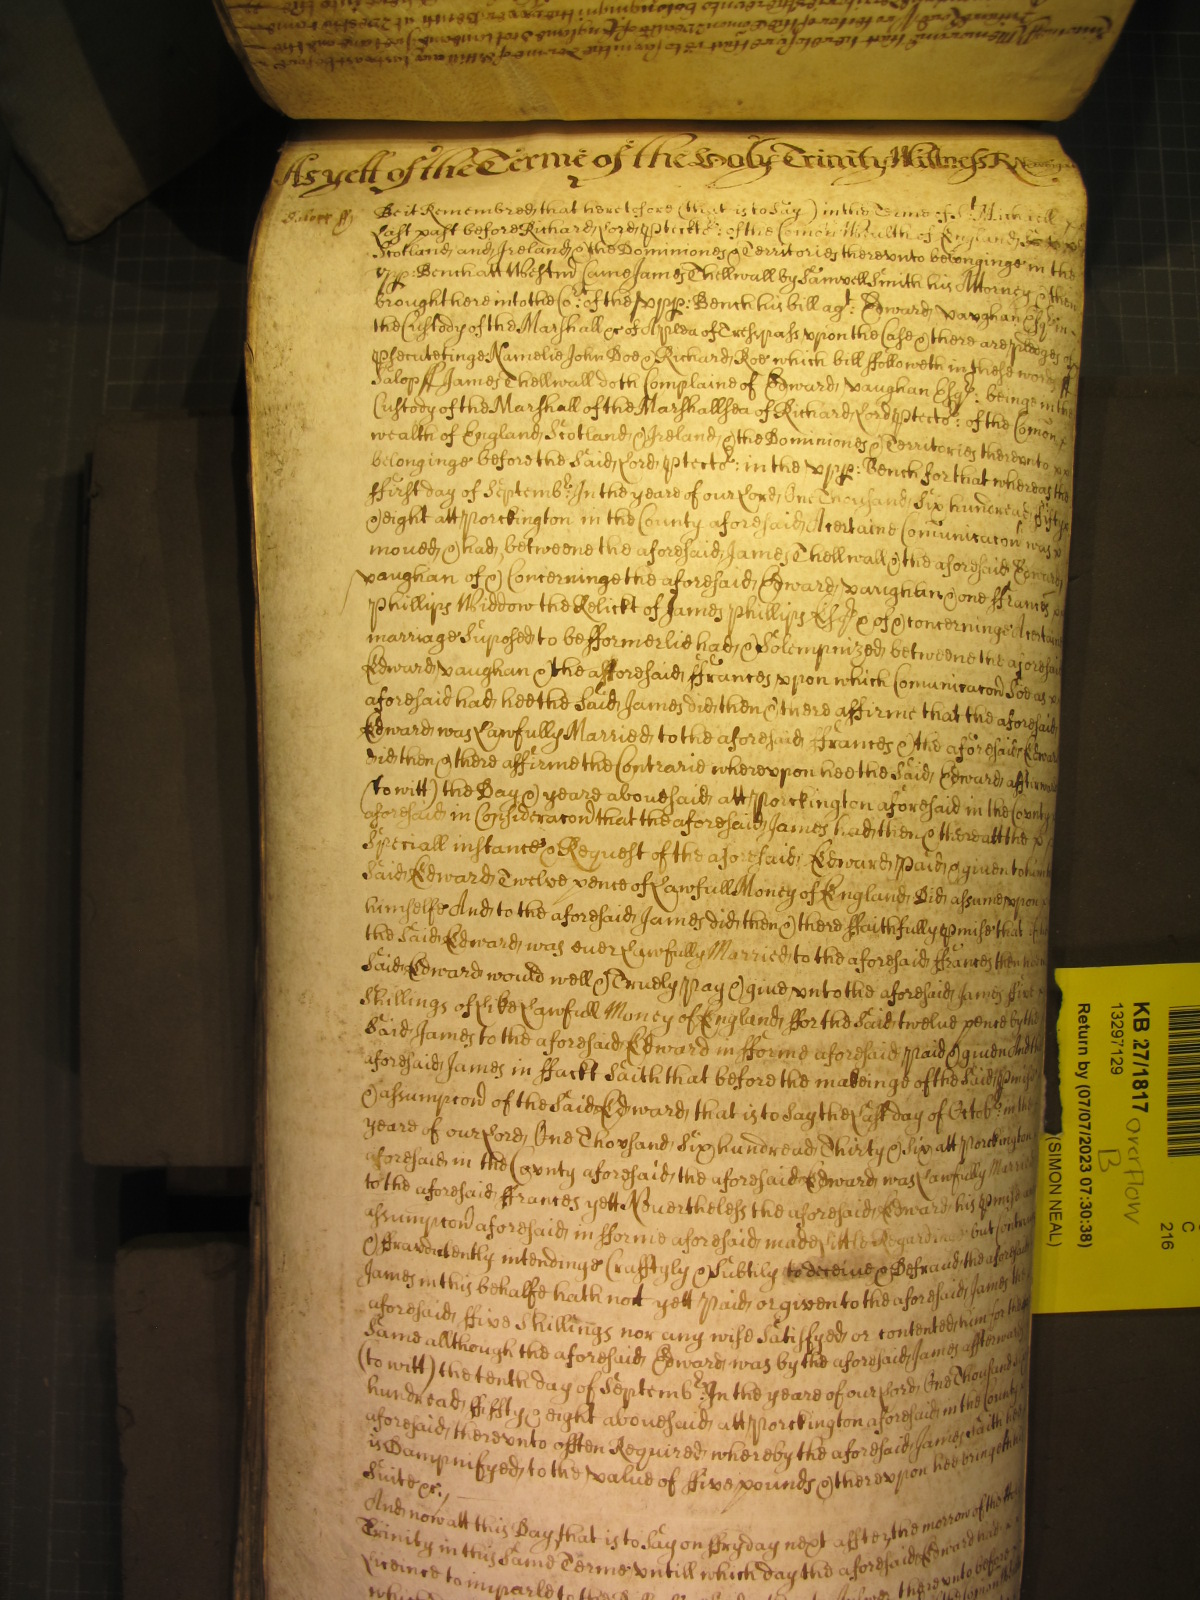 As yett of the Terme of the Holy Trinity Wittness R Newdigate
2
Salopp ss
Be it Remembred that heretofore (that is to Say) in the Terme of St Michaell
Last past before Richard Lord Ptector: of the Comon Wealth of England
Scotland and Ireland & the Dominiones & Territories therevnto belonginge in the
vpp: Bench att Westmr Came James Thellwall by Samvell Smith his Attorney & then
brought here into the Crt: of the vpp: Bench his bill agt: Edward Vaughan Esqr in
the Custody of the Marshall &c of A plea of Trespass vpon the Case & there are pledges of
psecutetinge Namelie John Doe & Richard Roe which bill ffolloweth in these words ss
Salop ss James Thellwall doth Complaine of Edward Vaughan Esqr: beinge in the
Custody of the Marshall of the Marshallsea of Richard Lord Ptector: of the Comon
wealth of England Scotland & Ireland & the Dominiones & Territories therevnto
belonginge before the Said Lord Ptector: in the vpp: Bench for that whereas the
ffirst day of Septembr: In the yeare of our Lord One Thousand Six hundread fifty
& eight att Porckington in the County aforesaid A certaine Comunicacon was
moued & had betweene the aforesaid James Thellwall & the aforesaid Edward
Vaughan of & Concerninge the aforesaid Edward Vaughan & one ffrances
Phillips Widdow the Relickt of James Phillips Esqr & of & concerninge A certaine
marriage Suposed to be fformerlie had & Solempnized betweene the aforesaid
Edward Vaughan & the afforesaid ffrances vpon which Comunicacon Soe as
aforesaid had hee the Said James did then & there affirme that the aforesaid
Edward was Lawfully Married to the aforesaid ffrances & the aforesaid Edward
did then & there affirme the Contrarie wherevpon hee the Said Edward afterwards
(to witt) the Day & yeare abouesaid att Porckington aforesaid in the County
aforesaid in Consideracon that the aforesaid James had then & there att the
Speciall instance & Request of the aforesaid Edward Paid & given to him the
Said Edward Twelve pence of Lawfull Money of England Did assume vpon
himselfe And to the aforesaid James did then & there ffaithfully pmise that if
the Said Edward was euer Lawfully Married to the aforesaid ffrances then
Said Edward would well & Truely Pay & giue vnto the aforesaid James ffiue
Shillings of Like Lawfull Money of England ffor the Said twelue pence by the
Said James to the aforesaid Edward in fforme aforesaid Paid & given And the
aforesaid James in ffackt Saith that before the makeinge of the Said pmise
& assumpcon of the Said Edward that is to Say the Last day of Octobr: in the
yeare of our Lord One Thousand Six hundread Thirty & Six att Porckington
aforesaid in the County aforesaid the aforesaid Edward was Lawfully Married
to the aforesaid ffrances yett Neuertheless the aforesaid Edward his pmise and
assumpcon aforesaid in fforme aforesaid made Little Regardinge but
& ffraudulently intendinge Crafftyly & Subtily to deceiue & Defraud the aforesaid
James in this behalfe hath not yett Paid or given to the aforesaid James the
aforesaid ffive Shillings nor any wise Satisfyed or contented him for the
Same allthough the aforesaid Edward was by the aforesaid James afterwards
(to witt) the tenth day of Septembr: In the yeare of our Lord One Thousand Six
hundread ffifty & eight abouesaid att Porckington aforesaid in the County
aforesaid therevnto offten Required whereby the aforesaid James Saith hee
is Dampnifyed to the value of ffive pounds & therevpon hee bringeth
Suite &c:
And now att this Day that is to Say on ffryday next after the morrow of the
Trinity in this Same Terme vntill which day the aforesaid Edward had
Licence to imparle to the
KB 27/1817 overflow
B
13297129
Return by (07/07/2023 07:30:38)
(SIMON NEAL)
C
216